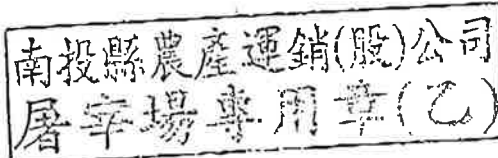 南投縣農產運銷(股)公司
屠宰場專用章(乙)